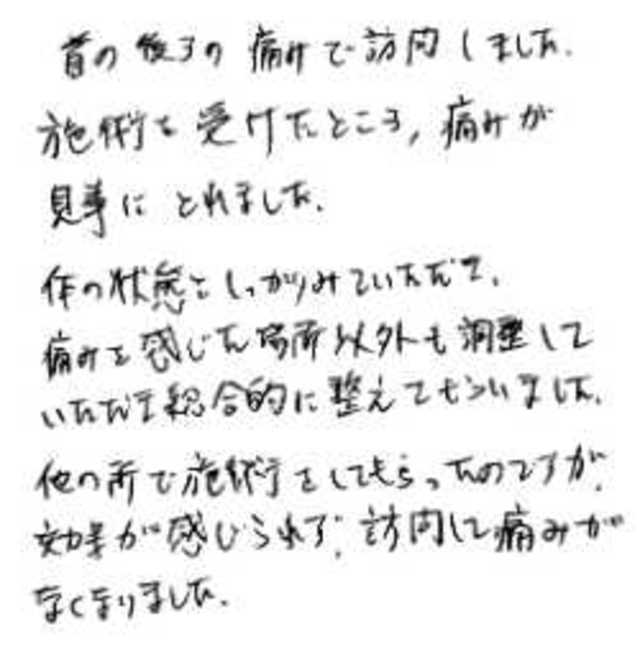 首の後ろの痛みで訪問しました.
施術を受けたところ,痛みが
見事にとれました.
体の状態をしっかりみていただき,
痛みを感じた場所以外も調整して
いただき総合的に整えてもらいました.
他の所で施術をしてもらったのですが,
効果が感じられず,訪問して痛みが
なくなりました.